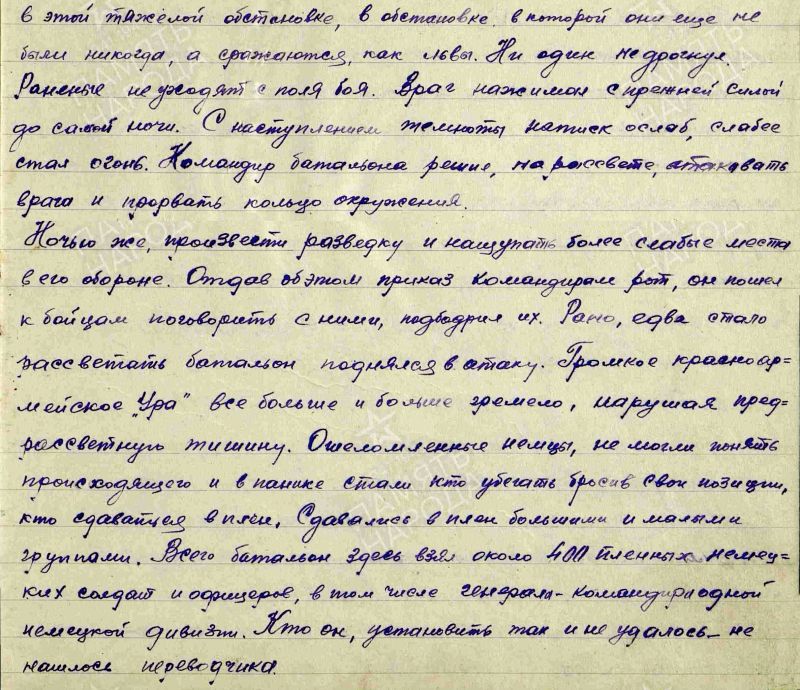 в этой тяжёлой обстановке, в обстановке в которой они еще не
были никогда, а сражаются, как львы. Ни один не дрогнул.
Раненые не уходят с поля боя. Враг нажимал с прежней силой
до самой ночи. С наступлением темноты натиск ослаб, слабее
стал огонь. Командир батальона решил, на рассвете, атаковать
врага и прорвать кольцо окружения.
Ночью же, произвести разведку и нащупать более слабые места
в его обороне. Отдав об этом приказ командирам рот, он пошел
к бойцам поговорить с ними, подбодрил их. Рано, едва стало
рассветать батальон поднялся в атаку. Громкое красноар=
мейское "Ура" все больше и больше гремело, нарушая пред=
рассветную тишину. Ошеломленные немцы, не могли понять
происходящего и в панике стали кто убегать бросив свои позиции,
кто сдаваться в плен. Сдавались в плен большими и малыми
группами. Всего батальон здесь взял около 400 пленных немец=
ких солдат и офицеров, в том числе генерала-командира одной
немецкой дивизии. Кто он, установить так и не удалось - не
нашлось переводчика.